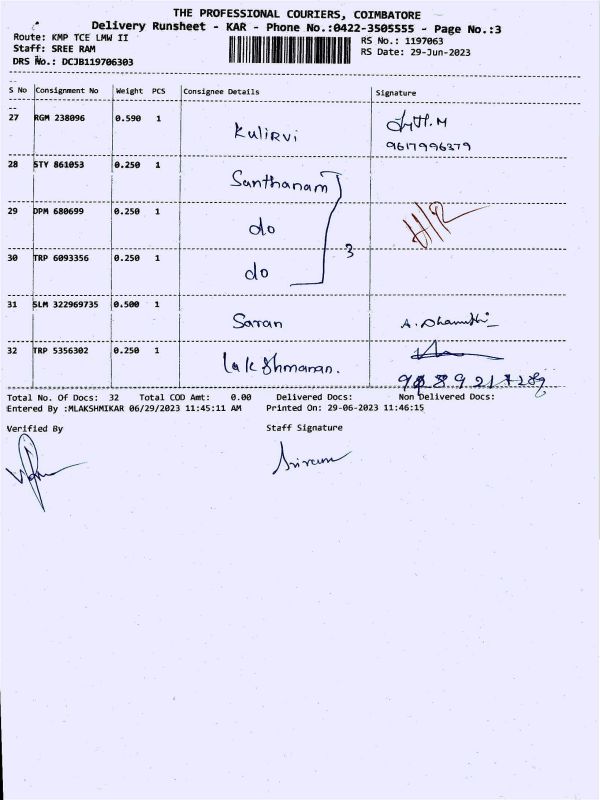 THE PROFESSIONAL COURIERS, COIMBATORE
Delivery Runsheet - KAR - Phone No.:0422-3505555 - Page No.:3
Route: KMP TCE LMW II
RS No.: 1197063
Staff: SREE RAM
RS Date: 29-Jun-2023
DRS No.: DCJB119706303
S No Consignment No Weight PCS Consignee Details Signature
27 RGM 238096 0.590 1 Kulirvi
9617996379
28 STY 861053 0.250 1 Santhanam
29 DPM 680699 0.250 1 do
3
30 TRP 6093356 0.250 1 do
31 SLM 322969735 0.500 1 Saran
32 TRP 5356302 0.250 1 Lakshmanan.
Total No. Of Docs: 32 Total COD Amt: 0.00 Delivered Docs: Non Delivered Docs:
Entered By :MLAKSHMIKAR 06/29/2023 11:45:11 AM Printed On: 29-06-2023 11:46:15
Verified By Staff Signature
Sriram